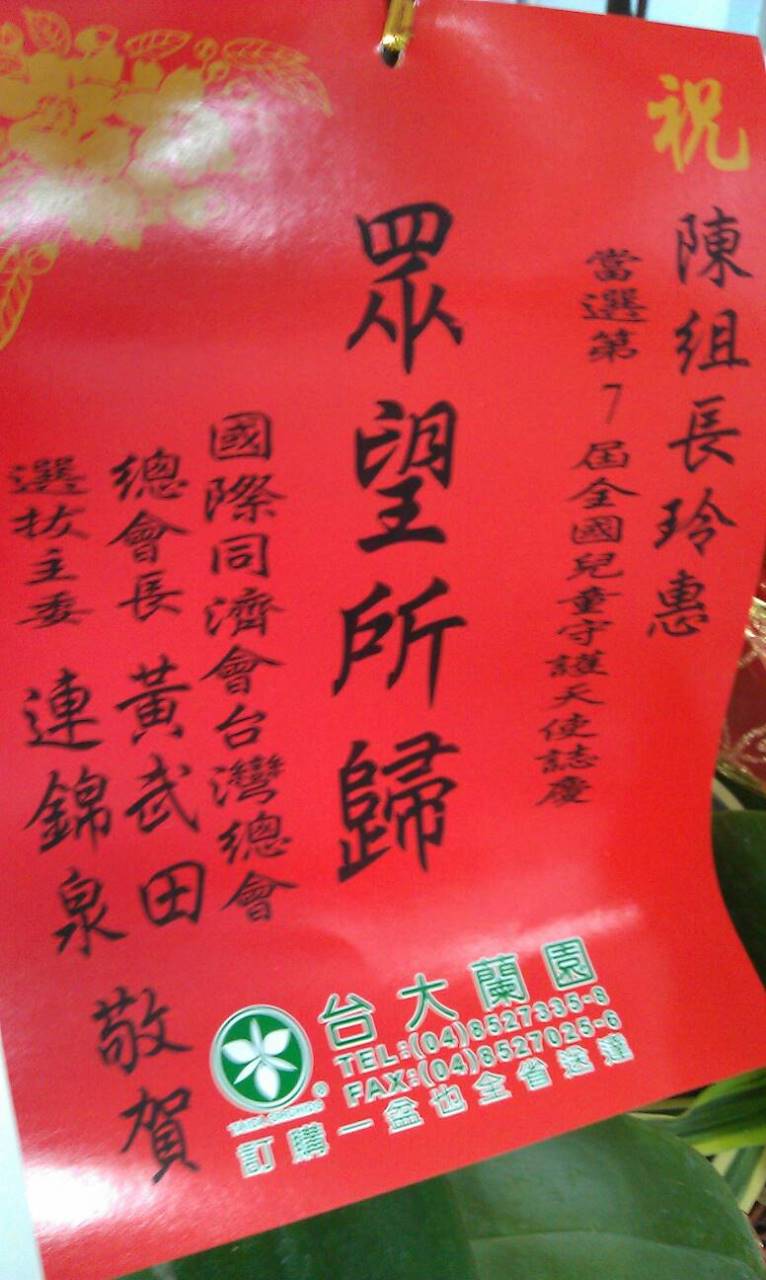 祝
陳組長玲惠
當選第7屆全國兒童守護天使誌慶
眾望所歸
國際同濟會台灣總會
總會長 黃武田
選拔主委 連錦泉
敬賀
台大蘭園
TEL:(04)8527335-8
FAX:(04)8527025-6
訂購一盆也全省送達